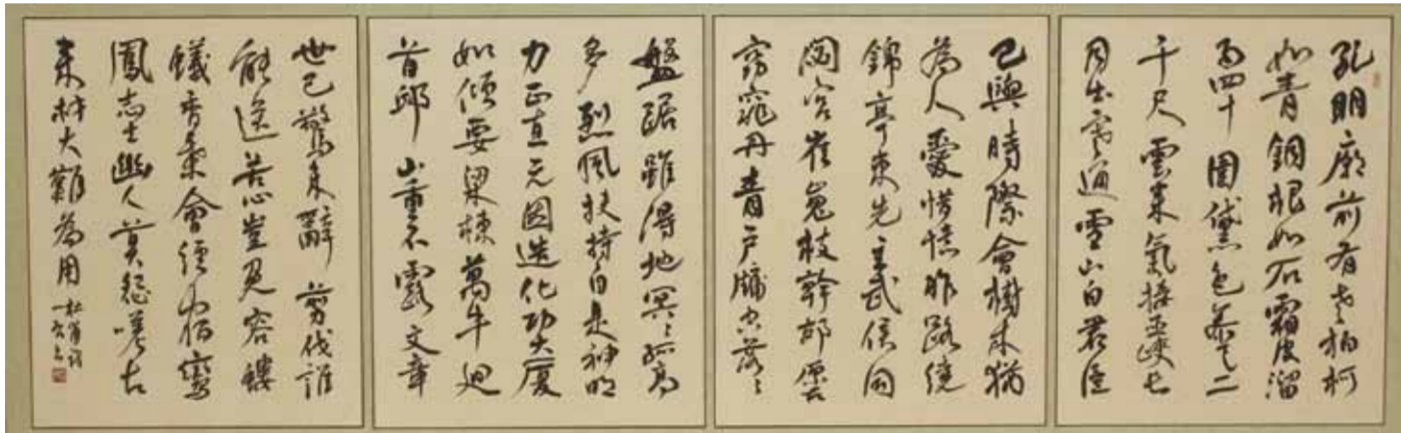 孔明廟前有老柏柯
如青銅根如石霜皮溜
雨四十圍黛色參天二
千尺雲來氣接巫峽長
月出寒通雪山白君臣
已與時際會樹木猶
為人愛惜憶昨路繞
錦亭東先主武侯同
閟宮崔嵬枝幹郊原古
窈窕丹青戶牖空落〻
盤踞雖得地冥〻孤高
多烈風扶持自是神明
力正直元因造化功大廈
如傾要梁棟萬牛迴
首邱山重不露文章
世已驚未辭剪伐誰
能送苦心豈免容螻
蟻香葉會經宿鸞
鳳志士幽人莫怨嗟古
來材大難為用
杜甫詩